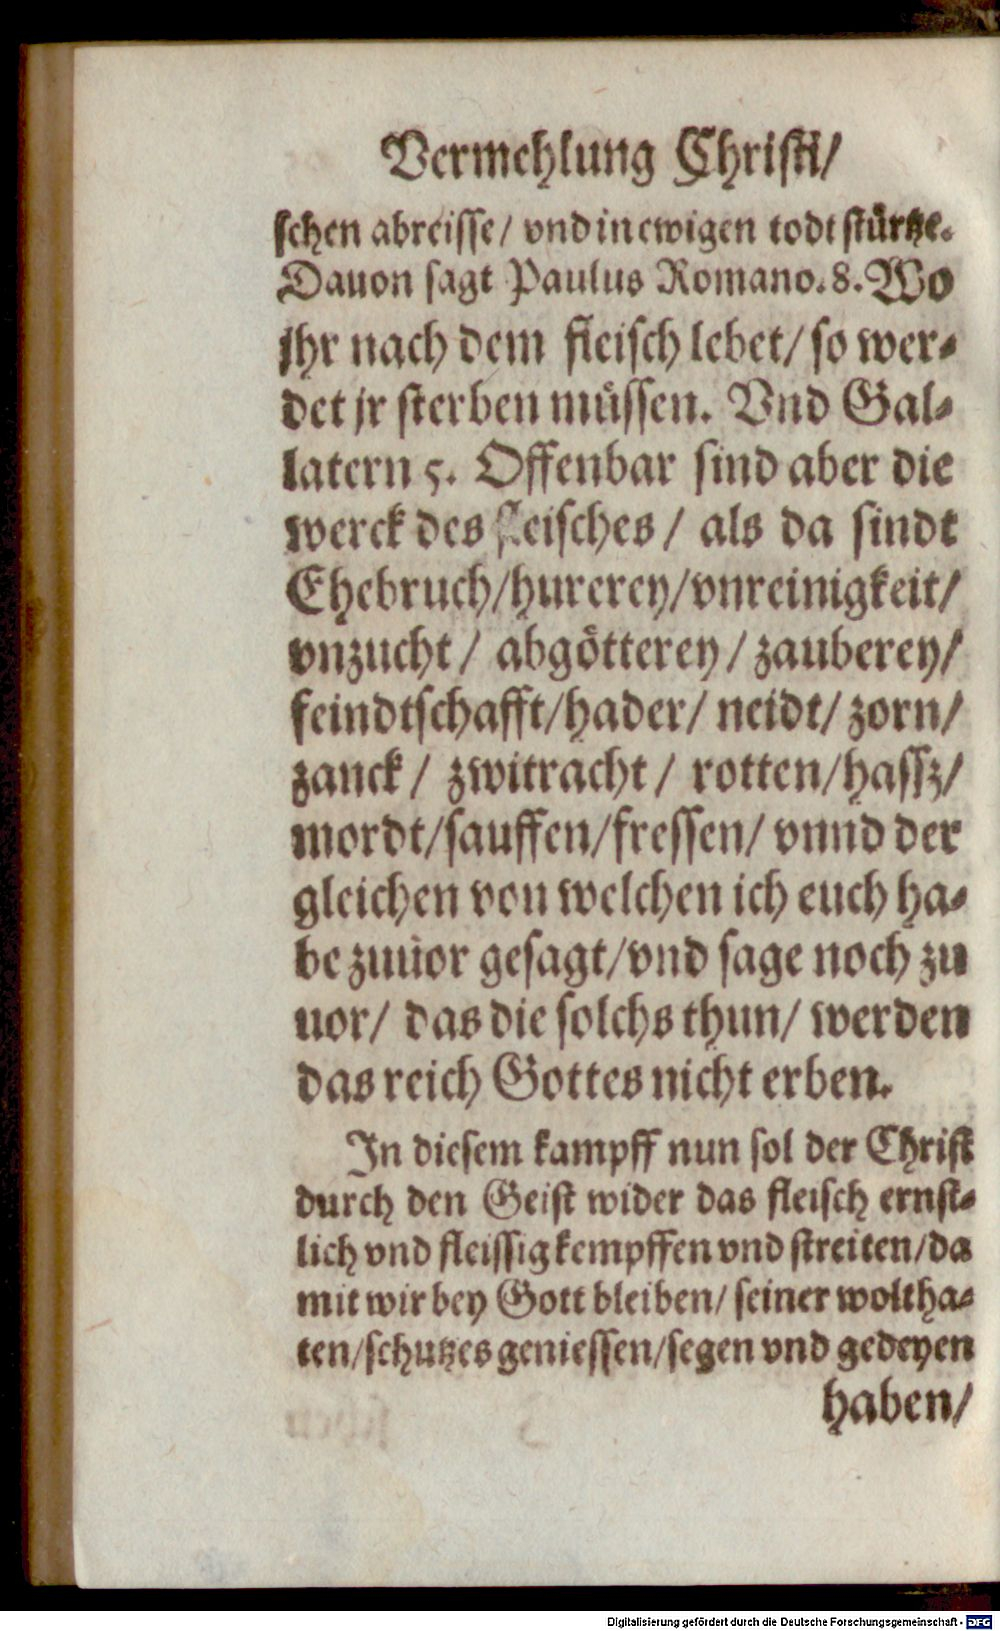 Vermehlung Christi/
schen abreisse/ vnd in ewigen todt stürtze.
Dauon sagt Paulus Romano. 8. Wo
jhr nach dem fleisch lebet/ so wer-
det jr sterben müssen. Vnd Gal-
latern 5. Offenbar sind aber die
werck des fleisches/ als da sindt
Ehebruch/hurerey/vnreinigkeit/
vnzucht/ abgötterey/zauberey/
feindtschafft/hader/ neidt/ zorn/
zanck/ zwitracht/ rotten/hassz/
mordt/sauffen/fressen/ vnnd der
gleichen von welchen ich euch ha-
be zuuor gesagt/vnd sage noch zu
uor/ das die solchs thun/ werden
das reich Gottes nicht erben.
In diesem kampff nun sol der Christ
durch den Geist wider das fleisch ernst-
lich vnd fleissig kempffen vnd streiten/da
mit wir bey Gott bleiben/ seiner woltha-
ten/schutzes geniessen/segen vnd gedeyen
haben/
Digitalisierung gefördert durch die Deutsche Forschungsgemeinschaft - DFG